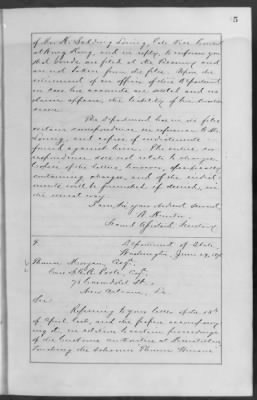 5
of Mr. H. Seldeng Loring, late Vice Consul
at Hong Kong, and in reply, to inform you
that bonds are filed at the Treasury and
are not taken from the files. Upon the
retirement of an officer of this Department
in case his accounts are settled and no
claims appear, the liability of his bondsmen
cease.
The Department has on its files
certain correspondence in reference to Mr.
Loring, and copies of indictments
found against him. The entire cor-
respondence does not relate to charges.
Copies of the letters, however, specifically
containing charges, and of the indict-
ments will be furnished if desired, in
the usual way.
I am, Sir, your obedient servant,
W. Hunter
Second Assistant Secretary
Department of State,
Washington, June 29,
Thomas Morgan, Esq.
Care S. G. R. Poole, Esq.
73 Carondelet St.,
New Orleans, La.
Sir:
Referring to your letter of the 16th
of April last, and the papers accompany-
ing it, in relation to certain proceedings
of the Customs authorities at
touching the schooner